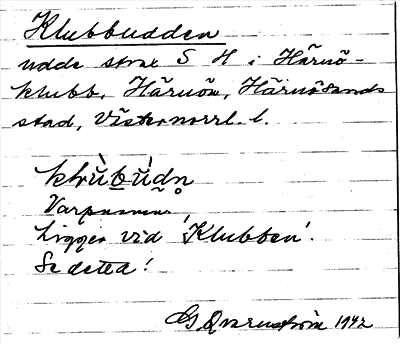 Klubbudden
udde strax S H i Härnö-
klubb, Härnön, Härnösands
stad, Västernorrl. l.
klùbùdn̥
Varpnamn
Ligger vid 'Klubben'.
Se detta!
G Qvarnström 1942